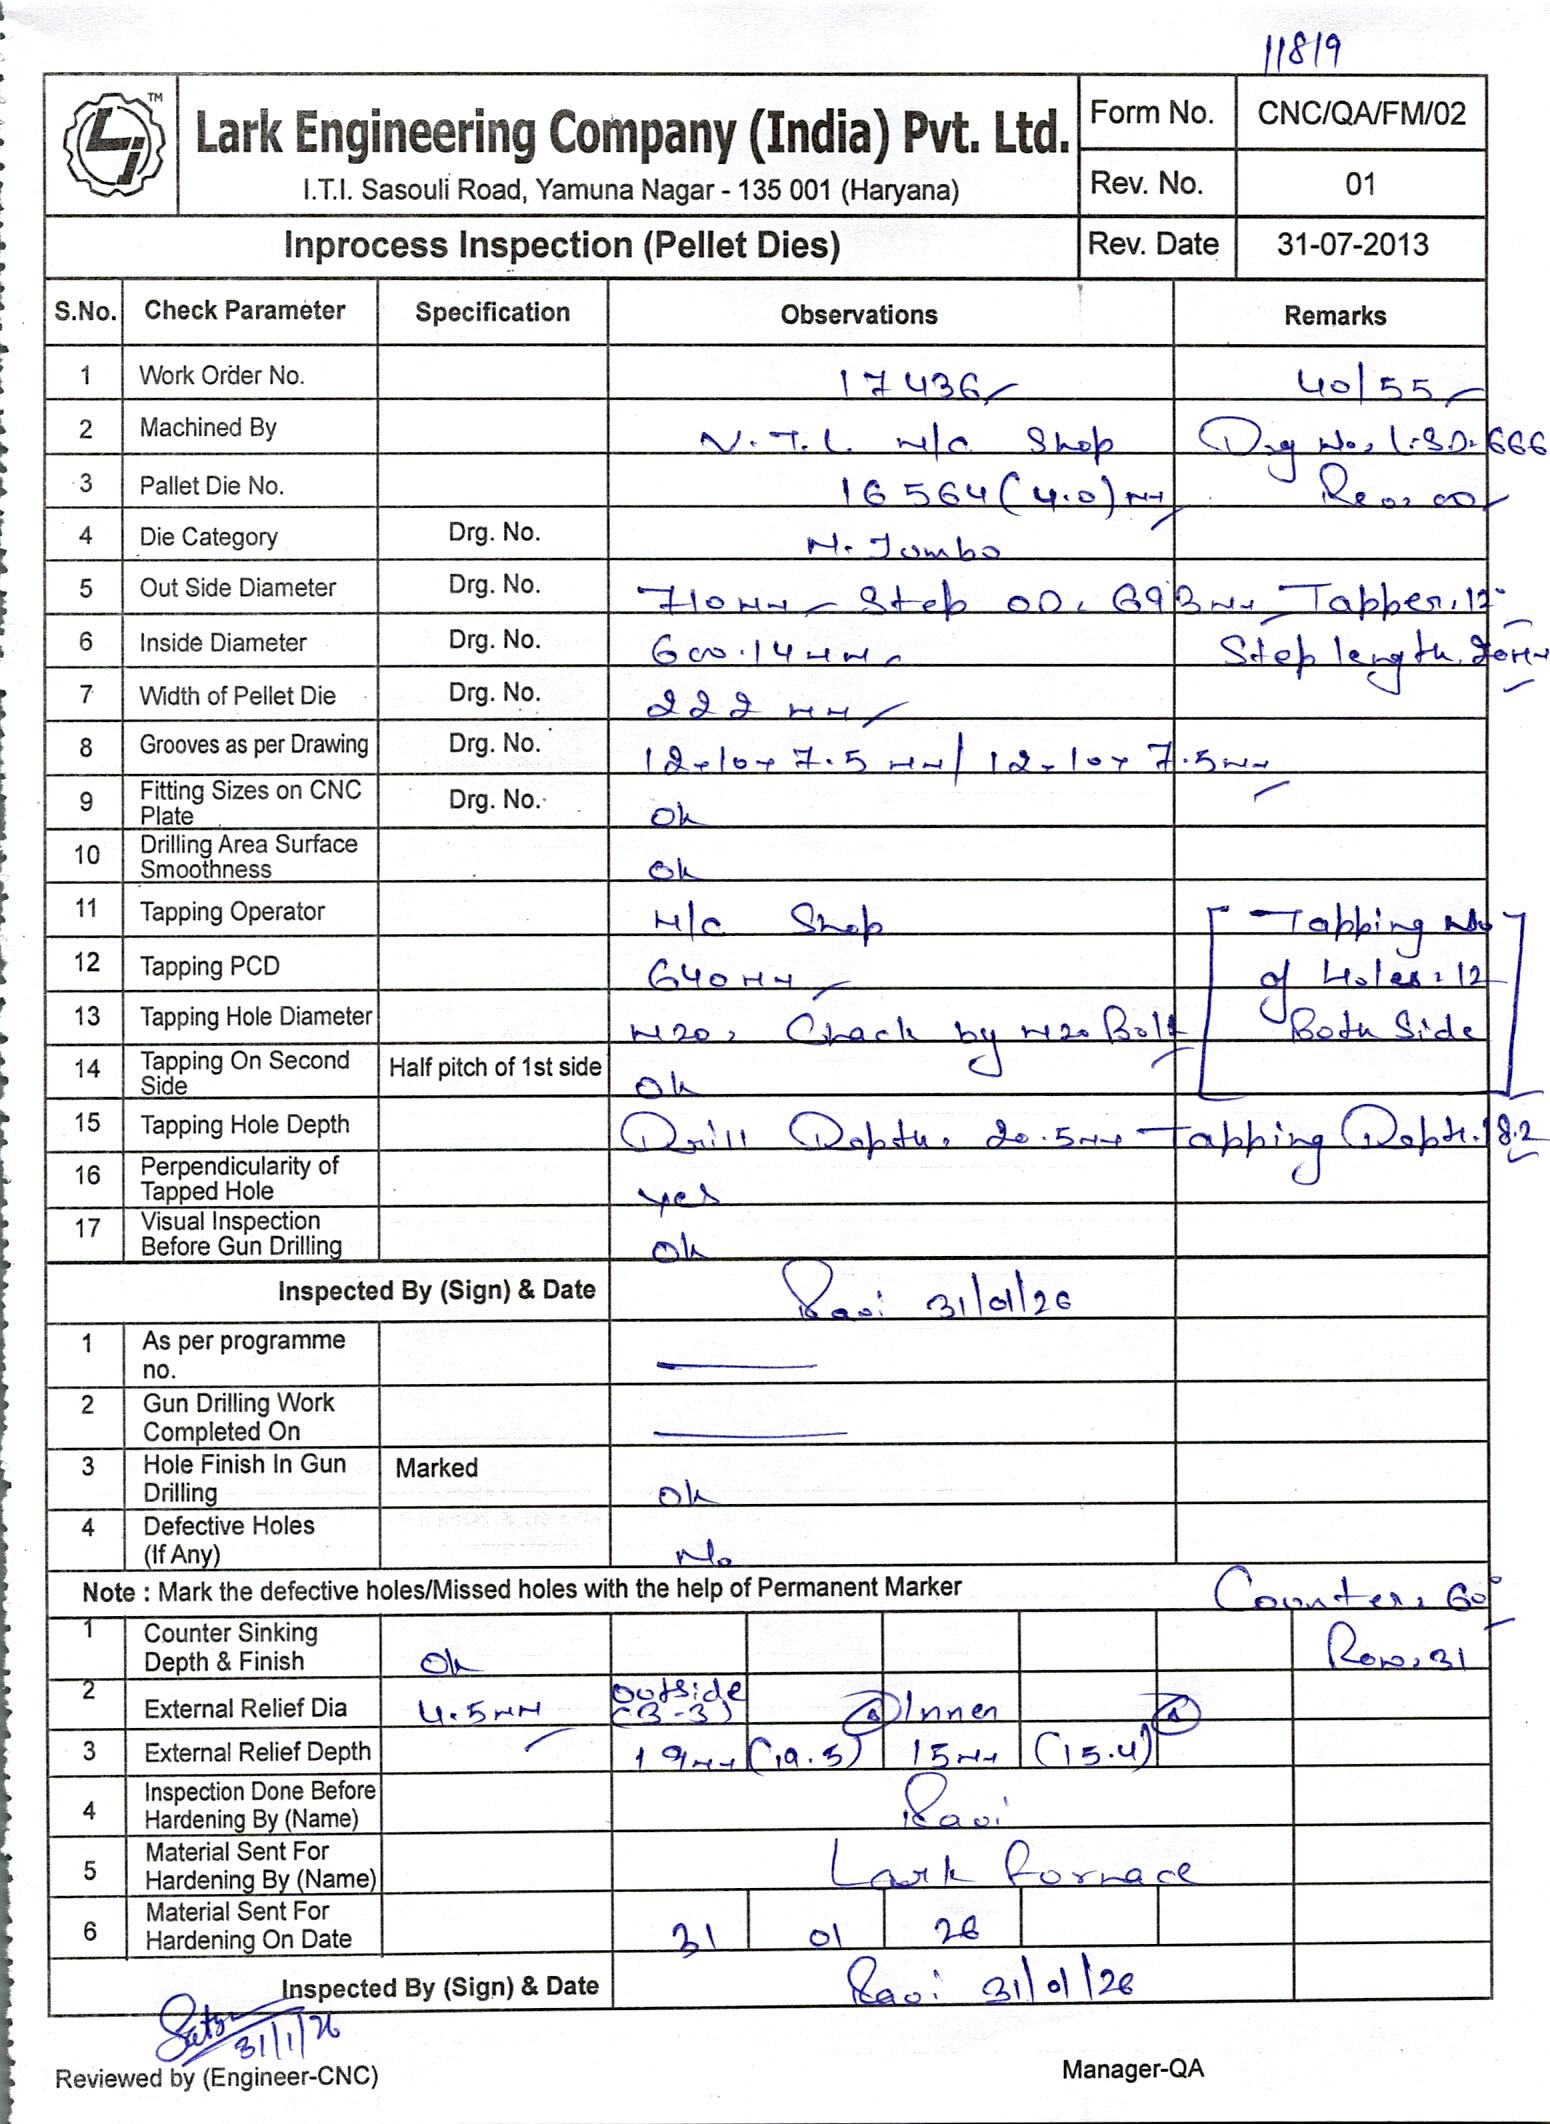 11819
TM
Lark Engineering Company (India) Pvt. Ltd.
I.T.I. Sasouli Road, Yamuna Nagar - 135 001 (Haryana)
Form No. CNC/QA/FM/02
Rev. No. 01
Inprocess Inspection (Pellet Dies) Rev. Date 31-07-2013
S.No. Check Parameter Specification Observations Remarks
1 Work Order No. 17436 40/55
2 Machined By N.T.L. M/C Shop Drg No. LSD-666
3 Pallet Die No. 16564 (4.0) MM Rev. 00
4 Die Category Drg. No. M. Jumbo
5 Out Side Diameter Drg. No. 710 MM Step OD. 693 MM Tapper. 12°
6 Inside Diameter Drg. No. 600.14 MM Step length. 20MM
7 Width of Pellet Die Drg. No. 222 MM
8 Grooves as per Drawing Drg. No. 12x10x7.5 MM / 12x10x7.5 MM
9 Fitting Sizes on CNC Plate Drg. No. Ok
10 Drilling Area Surface Smoothness Ok
11 Tapping Operator M/C Shop Tapping No
12 Tapping PCD 640 MM of Holes: 12
13 Tapping Hole Diameter M20, Chack by M20 Bolt Both Side
14 Tapping On Second Side Half pitch of 1st side Ok
15 Tapping Hole Depth Drill Depth. 20.5MM Tapping Depth. 18.2
16 Perpendicularity of Tapped Hole yes
17 Visual Inspection Before Gun Drilling Ok
Inspected By (Sign) & Date Ravi 31/01/26
1 As per programme no.
2 Gun Drilling Work Completed On
3 Hole Finish In Gun Drilling Marked Ok
4 Defective Holes (If Any) No
Note : Mark the defective holes/Missed holes with the help of Permanent Marker Counter. 60°
1 Counter Sinking Depth & Finish Ok Row. 31
2 External Relief Dia 4.5MM Outside (3-3) Inner
3 External Relief Depth 19MM (19.5) 15MM (15.4)
4 Inspection Done Before Hardening By (Name) Ravi
5 Material Sent For Hardening By (Name) Lark Fornace
6 Material Sent For Hardening On Date 31 01 26
Inspected By (Sign) & Date Ravi 31/01/26
31/1/26
Reviewed by (Engineer-CNC) Manager-QA